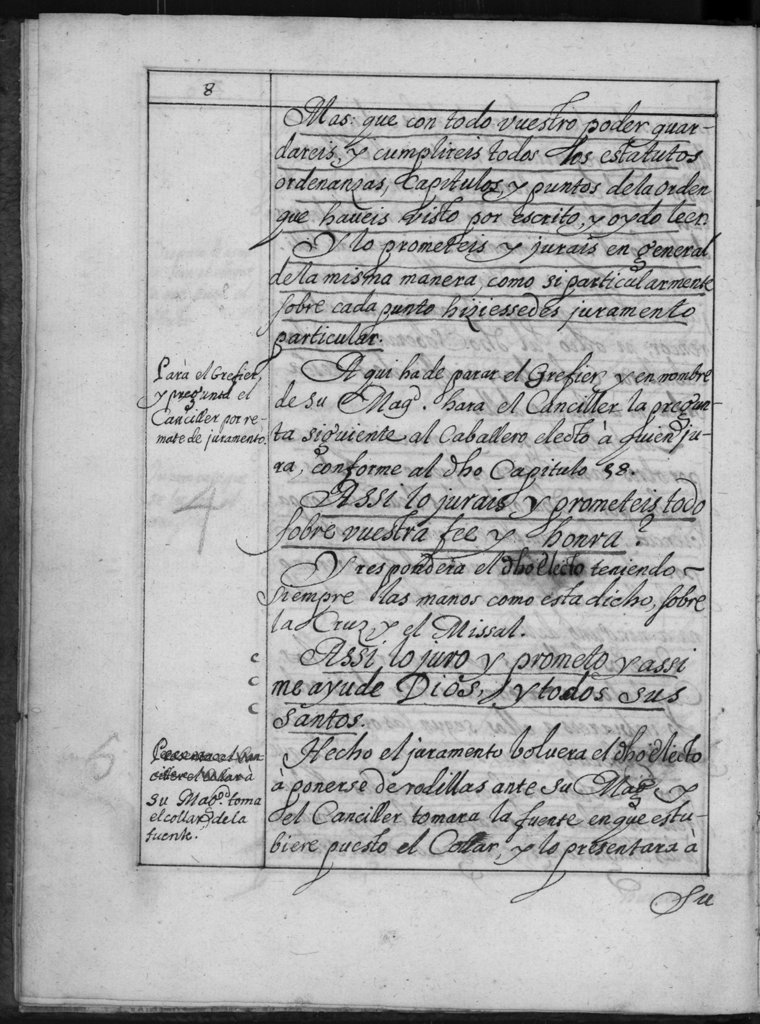 8
Mas: que con todo vuestro poder guar-
dareis, y cumplireis todos los estatutos
ordenanzas, Capitulos, y puntos de la orden
que haveis visto por escrito, y oydo leer.
Y lo prometeis y jurais en general
de la misma manera, como si particularmente
sobre cada punto hiziessedes juramento
particular.
Para el Grefier,
y pregunta el
Canciller por re-
mate de juramento.
Aqui ha de parar el Grefier, y en nombre
de su Magd. hara el Canciller la pregun-
ta siguiente al Caballero electo à quien ju-
ra, conforme al dho Capitulo 58.
Assi lo jurais y prometeis todo
sobre vuestra fee y honra?
Y respondera el dho electo teniendo
siempre las manos como esta dicho, sobre
la Cruz y el Missal.
Assi lo juro y prometo y assi
me ayude Dios, y todos sus
Santos.
su Magd. toma
el collar de la
fuente.
Hecho el juramento bolvera el dho electo
à ponerse de rodillas ante su Magd. y
el Canciller tomara la fuente en que estu-
biere puesto el Collar, y lo presentara à
Su
4